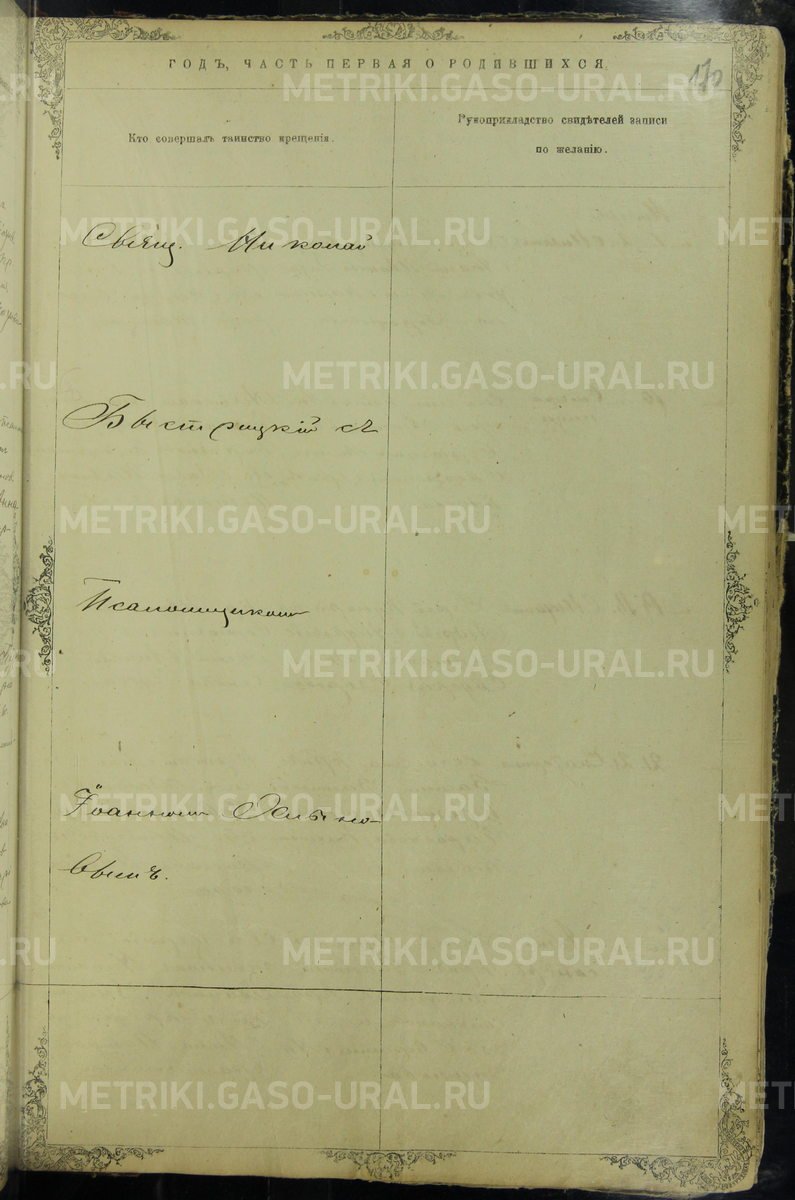 ГОДЪ, ЧАСТЬ ПЕРВАЯ О РОДИВШИХСЯ.
170
Кто совершалъ таинство крещенія.
Рукоприкладство свидѣтелей записи
по желанію.
Свящ. Николай
Быстрицкій съ
Псаломщикомъ
Іоанномъ
METRIKI.GASO-URAL.RU